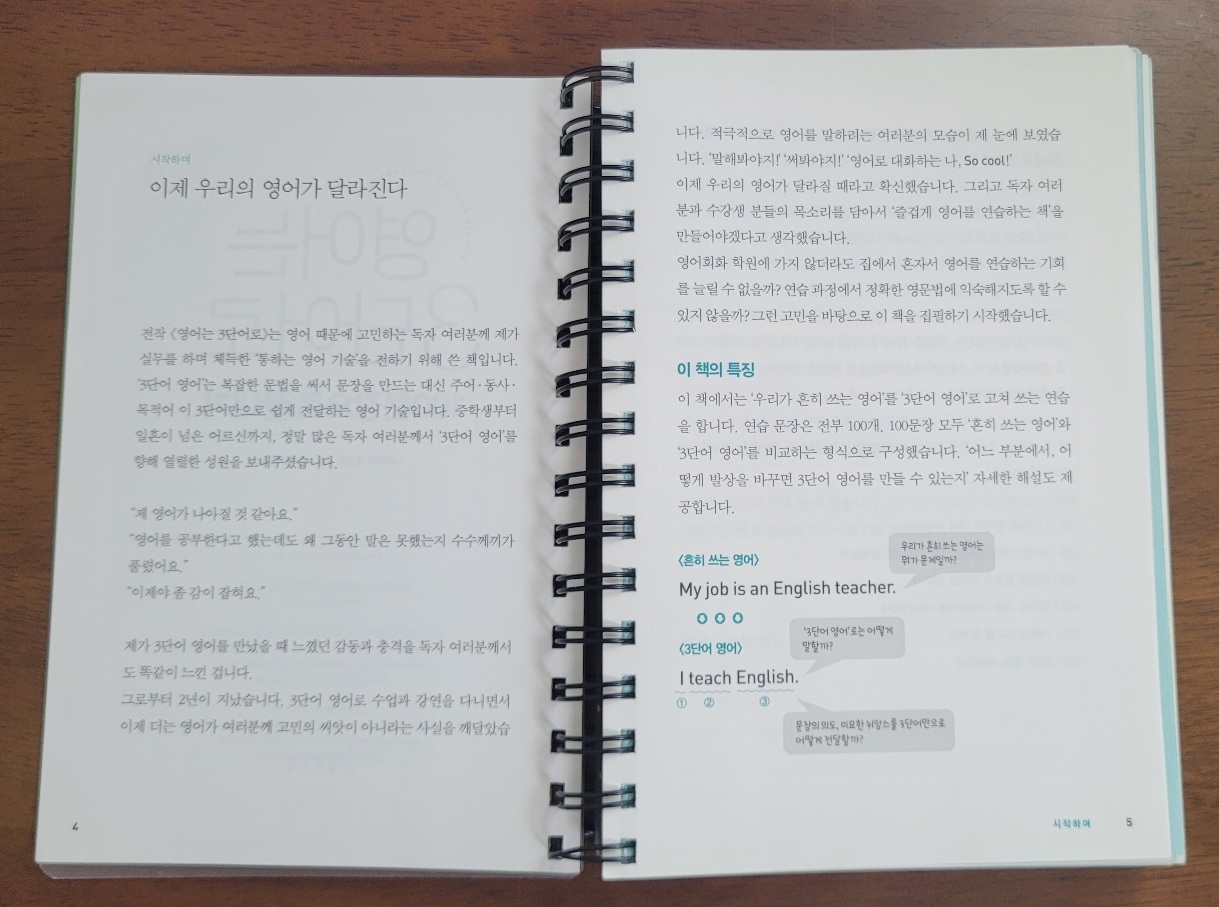 시작하며
이제 우리의 영어가 달라진다
전작 《영어는 3단어로》는 영어 때문에 고민하는 독자 여러분께 제가
실무를 하며 체득한 '통하는 영어 기술'을 전하기 위해 쓴 책입니다.
'3단어 영어'는 복잡한 문법을 써서 문장을 만드는 대신 주어·동사·
목적어 이 3단어만으로 쉽게 전달하는 영어 기술입니다. 중학생부터
일흔이 넘은 어르신까지, 정말 많은 독자 여러분께서 '3단어 영어'를
향해 열렬한 성원을 보내주셨습니다.
"제 영어가 나아질 것 같아요."
"영어를 공부한다고 했는데도 왜 그동안 말은 못했는지 수수께끼가
풀렸어요."
"이제야 좀 감이 잡혀요."
제가 3단어 영어를 만났을 때 느꼈던 감동과 충격을 독자 여러분께서
도 똑같이 느낀 겁니다.
그로부터 2년이 지났습니다. 3단어 영어로 수업과 강연을 다니면서
이제 더는 영어가 여러분께 고민의 씨앗이 아니라는 사실을 깨달았습
4
니다. 적극적으로 영어를 말하려는 여러분의 모습이 제 눈에 보였습
니다. '말해봐야지!' '써봐야지!' '영어로 대화하는 나, So cool!'
이제 우리의 영어가 달라질 때라고 확신했습니다. 그리고 독자 여러
분과 수강생 분들의 목소리를 담아서 '즐겁게 영어를 연습하는 책'을
만들어야겠다고 생각했습니다.
영어회화 학원에 가지 않더라도 집에서 혼자서 영어를 연습하는 기회
를 늘릴 수 없을까? 연습 과정에서 정확한 영문법에 익숙해지도록 할 수
있지 않을까? 그런 고민을 바탕으로 이 책을 집필하기 시작했습니다.
이 책의 특징
이 책에서는 '우리가 흔히 쓰는 영어'를 '3단어 영어'로 고쳐 쓰는 연습
을 합니다. 연습 문장은 전부 100개, 100문장 모두 '흔히 쓰는 영어'와
'3단어 영어'를 비교하는 형식으로 구성했습니다. '어느 부분에서, 어
떻게 발상을 바꾸면 3단어 영어를 만들 수 있는지' 자세한 해설도 제
공합니다.
우리가 흔히 쓰는 영어는
뭐가 문제일까?
〈흔히 쓰는 영어〉
My job is an English teacher.
'3단어 영어'로는 어떻게
말할까?
〈3단어 영어〉
I teach English.
① ② ③
문장의 의도, 미묘한 뉘앙스를 3단어만으로
어떻게 전달할까?
시작하며 5